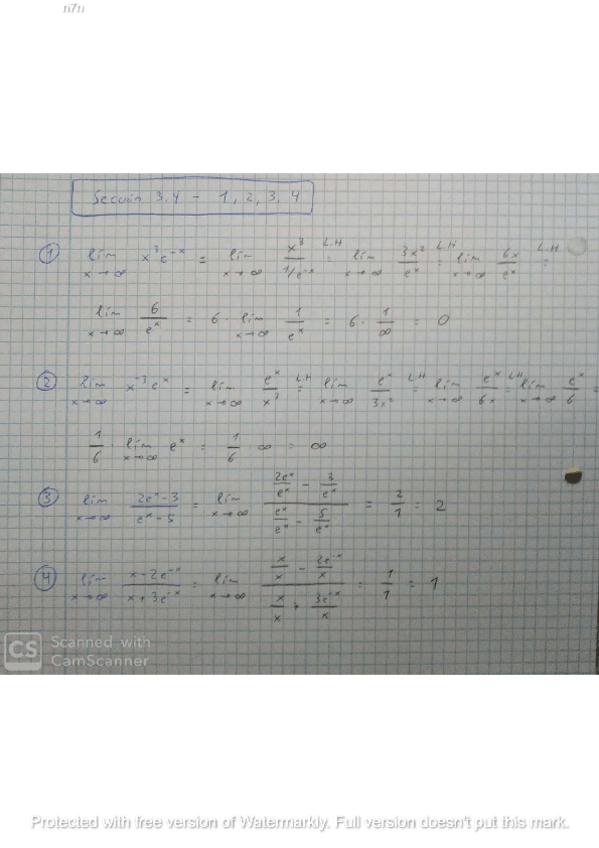 n7n
Section 3.4 - 1, 2, 3, 4
① lim x→∞ x³e⁻ˣ = lim x→∞ x³/(1/e⁻ˣ) L.H = lim x→∞ 3x²/eˣ L.H = lim x→∞ 6x/eˣ L.H =
lim x→∞ 6/eˣ = 6 · lim x→∞ 1/eˣ = 6 · 1/∞ = 0
② lim x→∞ x⁻³eˣ = lim x→∞ eˣ/x³ L.H = lim x→∞ eˣ/3x² L.H = lim x→∞ eˣ/6x L.H = lim x→∞ eˣ/6 =
1/6 · lim x→∞ eˣ = 1/6 · ∞ = ∞
③ lim x→∞ (2eˣ-3)/(eˣ-5) = lim x→∞ (2eˣ/eˣ - 3/eˣ)/(eˣ/eˣ - 5/eˣ) = 2/1 = 2
④ lim x→∞ (x-2e⁻ˣ)/(x+3e⁻ˣ) = lim x→∞ (x/x - 2e⁻ˣ/x)/(x/x + 3e⁻ˣ/x) = 1/1 = 1
CS Scanned with
CamScanner
Protected with free version of Watermarkly. Full version doesn't put this mark.